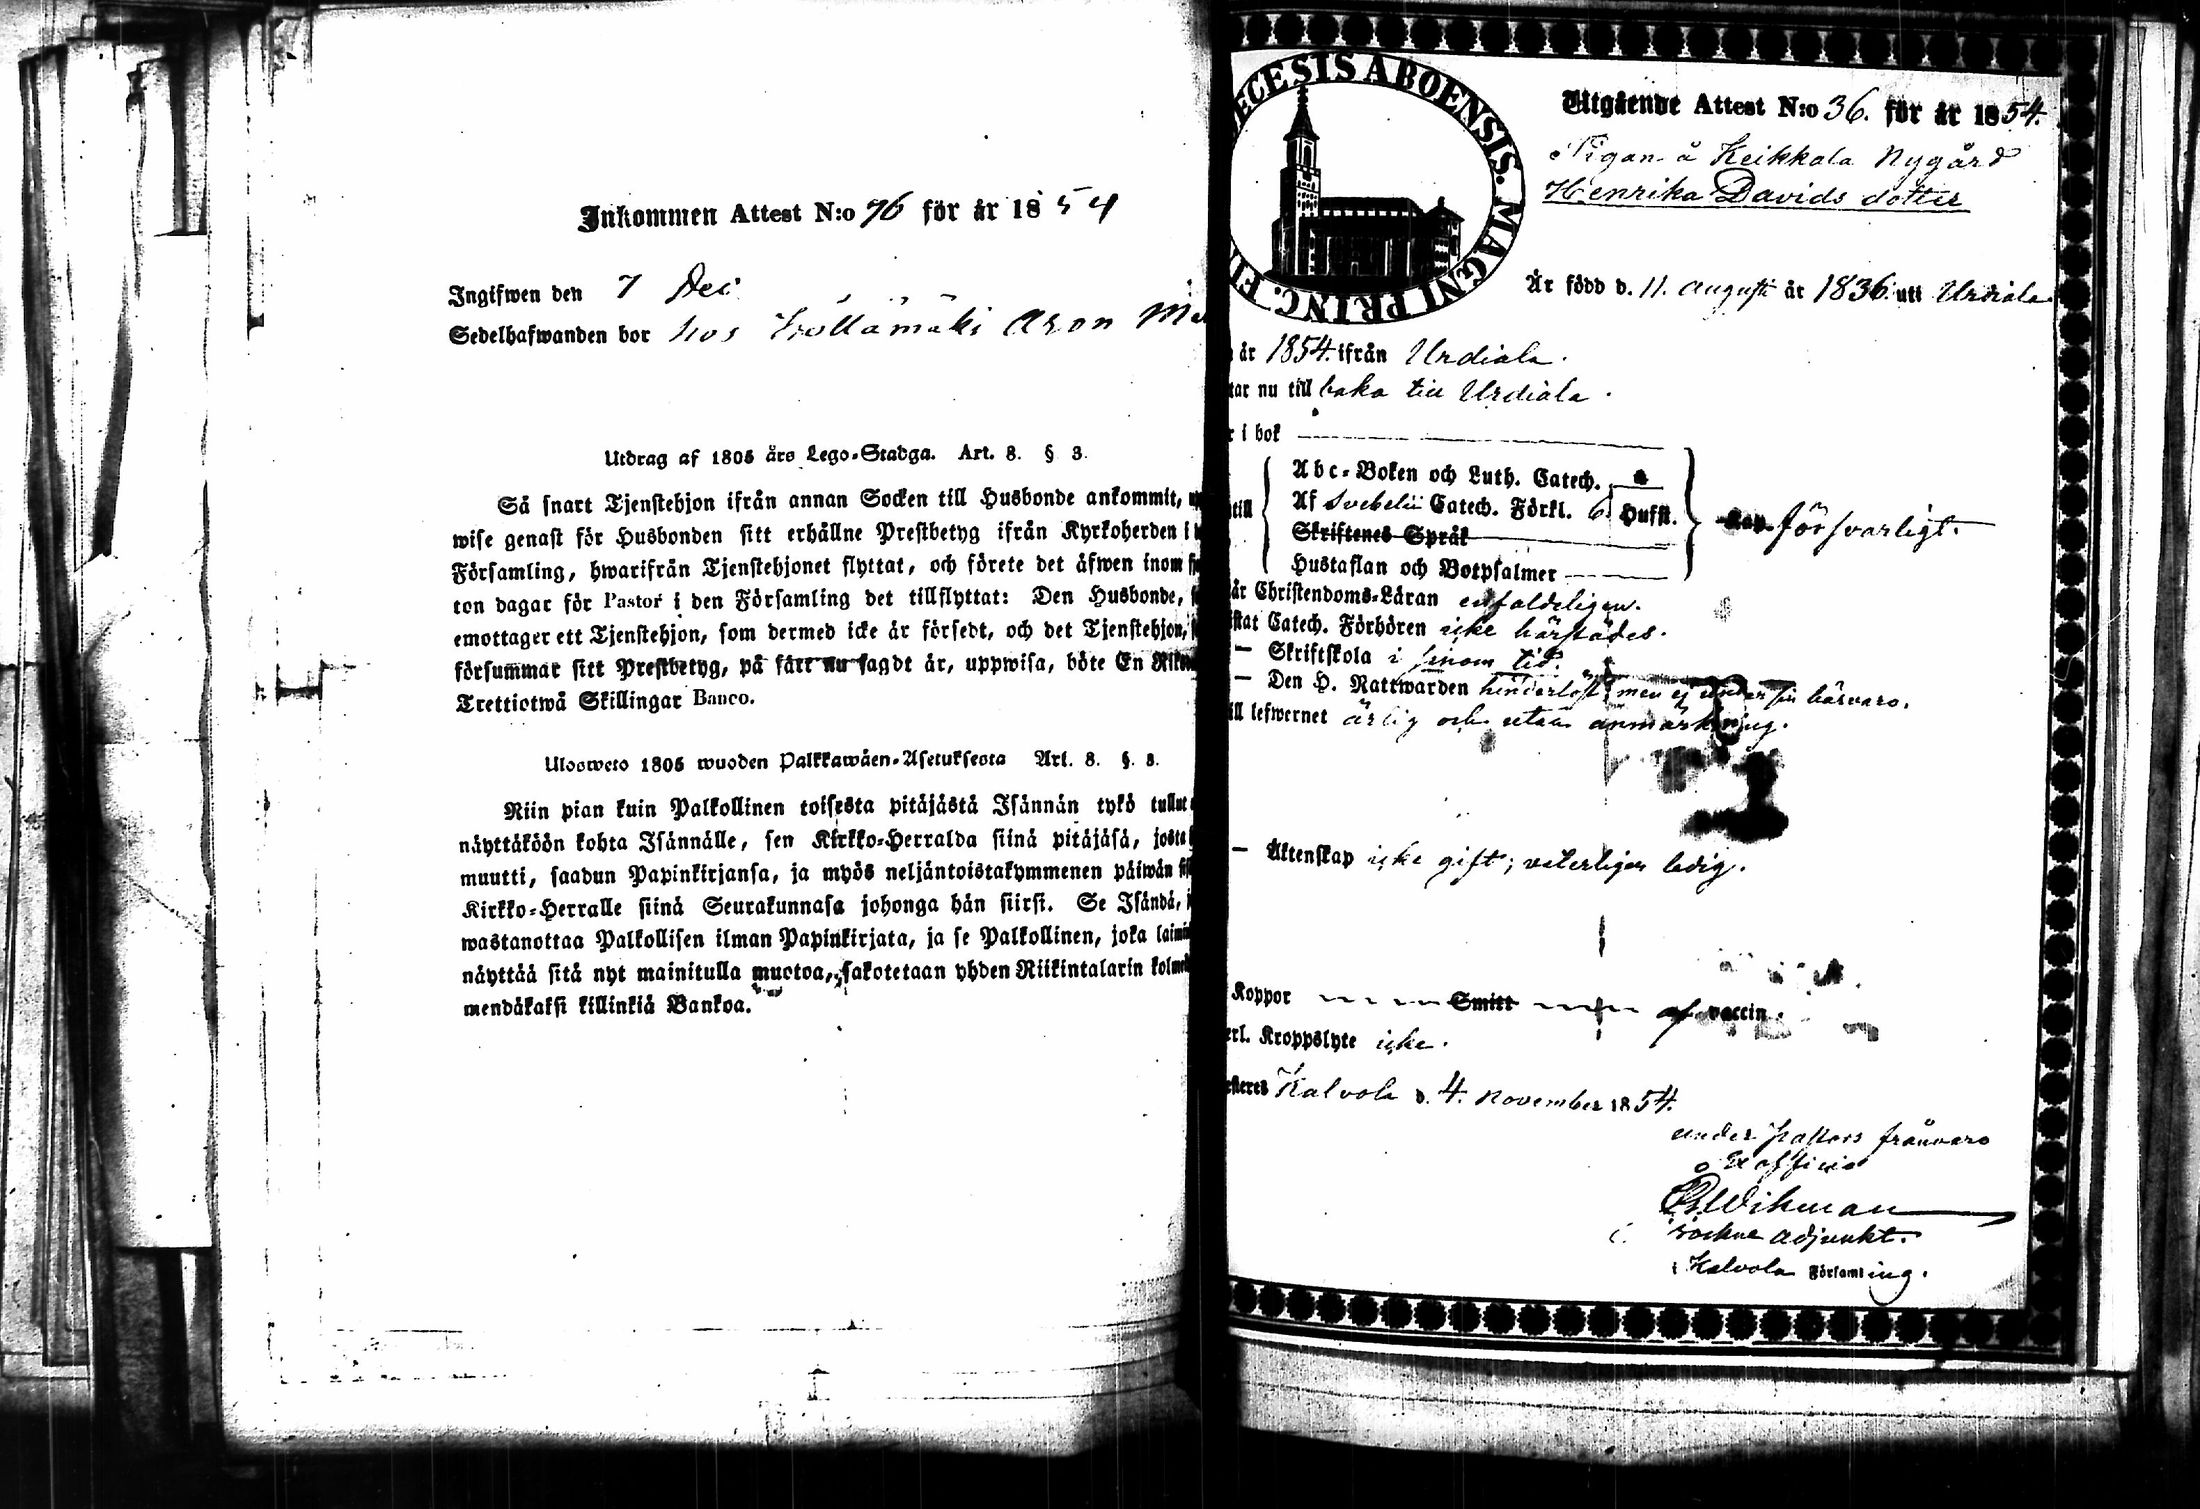 Inkommen Attest N:o 76 för år 1854
Ingifwen den 7 Dec
Sedelhafwanden bor hos Aron
Utdrag af 1805 års Lego-Stadga. Art. 8. § 3.
Så snart Tjenstehjon ifrån annan Socken till Husbonde ankommit,
wise genast för Husbonden sitt erhållne Prestbetyg ifrån Kyrkoherden i
Församling, hwarifrån Tjenstehjonet flyttat, och förete det äfwen inom
ton dagar för Pastor i den Församling det tillflyttat: Den Husbonde,
emottager ett Tjenstehjon, som dermed icke är försedt, och det Tjenstehjon,
försummar sitt Prestbetyg, på sätt nu sagdt är, uppwisa, böte En
Trettiotwå Skillingar Banco.
Ulosweto 1805 wuoden Palkkawäen-Asetuksesta Art. 8. §. 3.
Niin pian kuin Palkollinen toisesta pitäjästä Isännän tykö tullut
näyttäköön kohta Isännälle, sen Kirkko-Herralda siinä pitäjäsä, josta
muutti, saadun Papinkirjansa, ja myös neljäntoistakymmenen päiwän
Kirkko-Herralle siinä Seurakunnasa johonga hän siirsi. Se Isändä,
wastanottaa Palkollisen ilman Papinkirjata, ja se Palkollinen, joka
näyttää sitä nyt mainitulla muotoa, sakotetaan yhden Riikintalarin
mendäkaksi killinkiä Bankoa.
ECESIS ABOENSIS. MAGNI PRINC.
Utgående Attest N:o 36. för år 1854.
Pigan å Keikkala Nygård
Henrika Davids dotter
Är född d. 11. augusti år 1836. uti Urdiala
år 1854. ifrån Urdiala.
tar nu till baka till Urdiala.
i bok
Abc-Boken och Luth. Catech.
Af Svebelii Catech. Förkl. 6. Hufst.
Skriftenes Språk
Hustaflan och Botpsalmer
försvarligt.
Christendoms-Läran enfaldeligen.
Catech. Förhören icke härstädes.
— Skriftskola i sinom tid.
— Den H. Nattwarden hinderlöst, men ej under sin härvaro.
lefwernet ärlig och utan anmärkning.
— Äktenskap icke gift; veterligen ledig.
Koppor Smitt af vaccin.
Kroppslyte icke.
Kalvola d. 4. November 1854.
under Pastors frånvaro
Ex officio
Wikman
Sockne Adjunkt.
i Kalvola Församling.